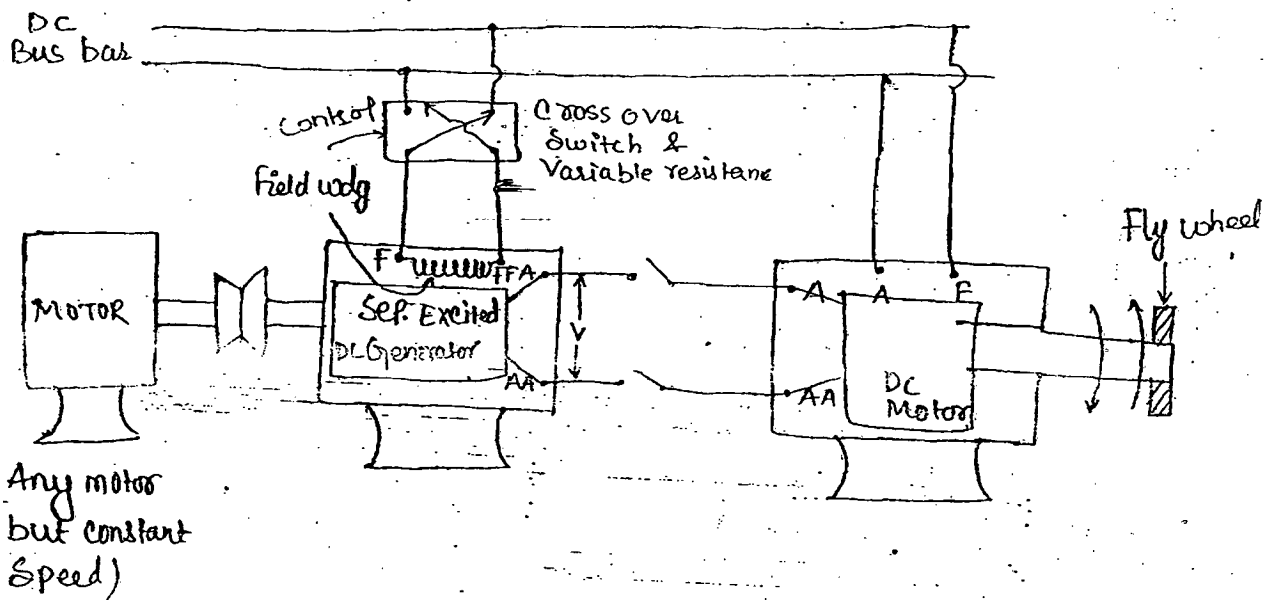 DC
Bus bar
Control
Cross over
Switch &
Variable resistane
Field wdg
Fly wheel
F
FF
A
MOTOR
Sep. Excited
DC Generator
V
AA
A
A
F
AA
DC
Motor
Any motor
but constant
Speed)